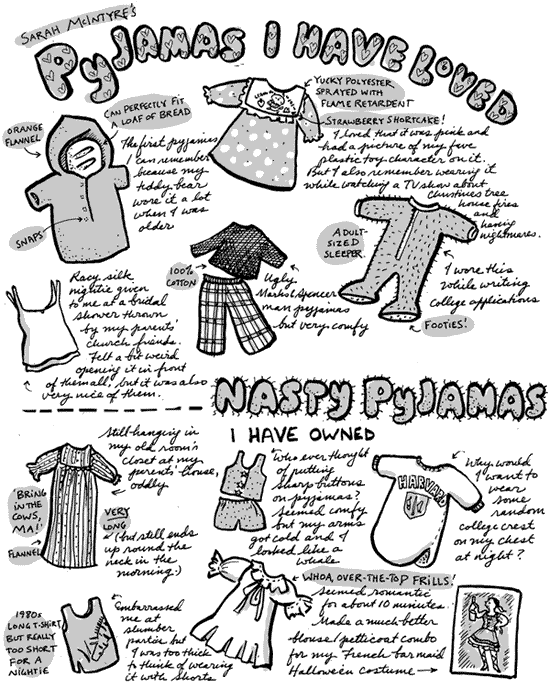 SARAH McINTYRE'S
PyJAMAS I HAVE LOVED
ORANGE
FLANNEL
CAN PERFECTLY FIT
A LOAF OF BREAD
SNAPS
The first pyjamas
I can remember
because my
teddy bear
wore it a lot
when I was
older
YUCKY POLYESTER
SPRAYED WITH
FLAME RETARDENT
STRAWBERRY SHORTCAKE!
I loved that it was pink and
had a picture of my fave
plastic toy character on it.
But I also remember wearing it
while watching a TV show about
Christmas tree
house fires
and
having
nightmares.
ADULT-
SIZED
SLEEPER
I wore this
while writing
college applications
FOOTIES!
100%
COTTON
Ugly
Marks & Spencer
man pyjamas
but very comfy
Racy silk
nightie given
to me at a bridal
shower thrown
by my parents'
church friends.
Felt a bit weird
opening it in front
of them all, but it was also
very nice of them.
NASTY PyJAMAS
I HAVE OWNED
Still hanging in
my old room's
closet at my
parents' house,
oddly
BRING
IN THE
COWS,
MA!
FLANNEL
VERY
LONG
(but still ends
up round the
neck in the
morning.)
Who ever thought
of putting
sharp buttons
on pyjamas?
Seemed comfy
but my arms
got cold and I
looked like a
whale
HARVARD
Why would
I want to
wear
some
random
college crest
on my chest
at night?
1980s
LONG T-SHIRT
BUT REALLY
TOO SHORT
FOR A
NIGHTIE
Embarrassed
me at
slumber
parties but
I was too thick
to think of wearing
it with shorts
WHOA, OVER-THE-TOP FRILLS!
Seemed romantic
for about 10 minutes.
Made a much better
blouse/petticoat combo
for my French barmaid
Halloween costume